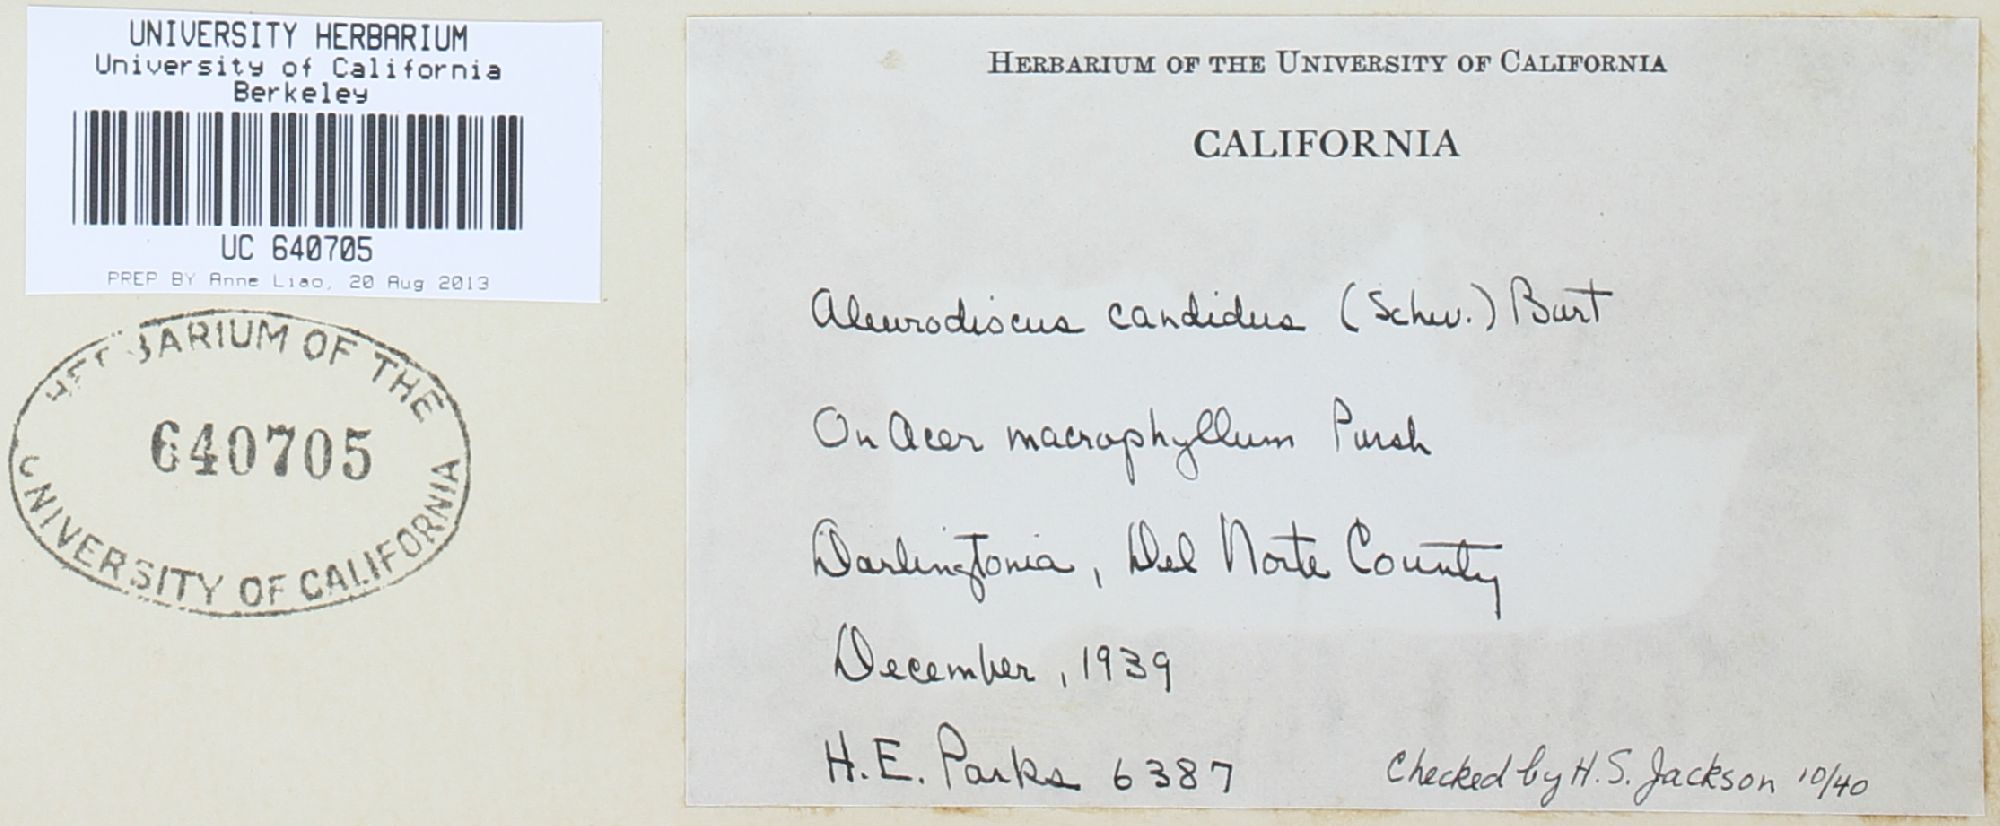 UNIVERSITY HERBARIUM
University of California
Berkeley
UC 640705
PREP BY Anne Liao, 20 Aug 2013
HERBARIUM OF THE
640705
UNIVERSITY OF CALIFORNIA
HERBARIUM OF THE UNIVERSITY OF CALIFORNIA
CALIFORNIA
Aleurodiscus candidus (Schw.) Burt
On Acer macrophyllum Pursh
Darlingtonia, Del Norte County
December, 1939
H.E. Parks 6387
Checked by H.S. Jackson 10/40